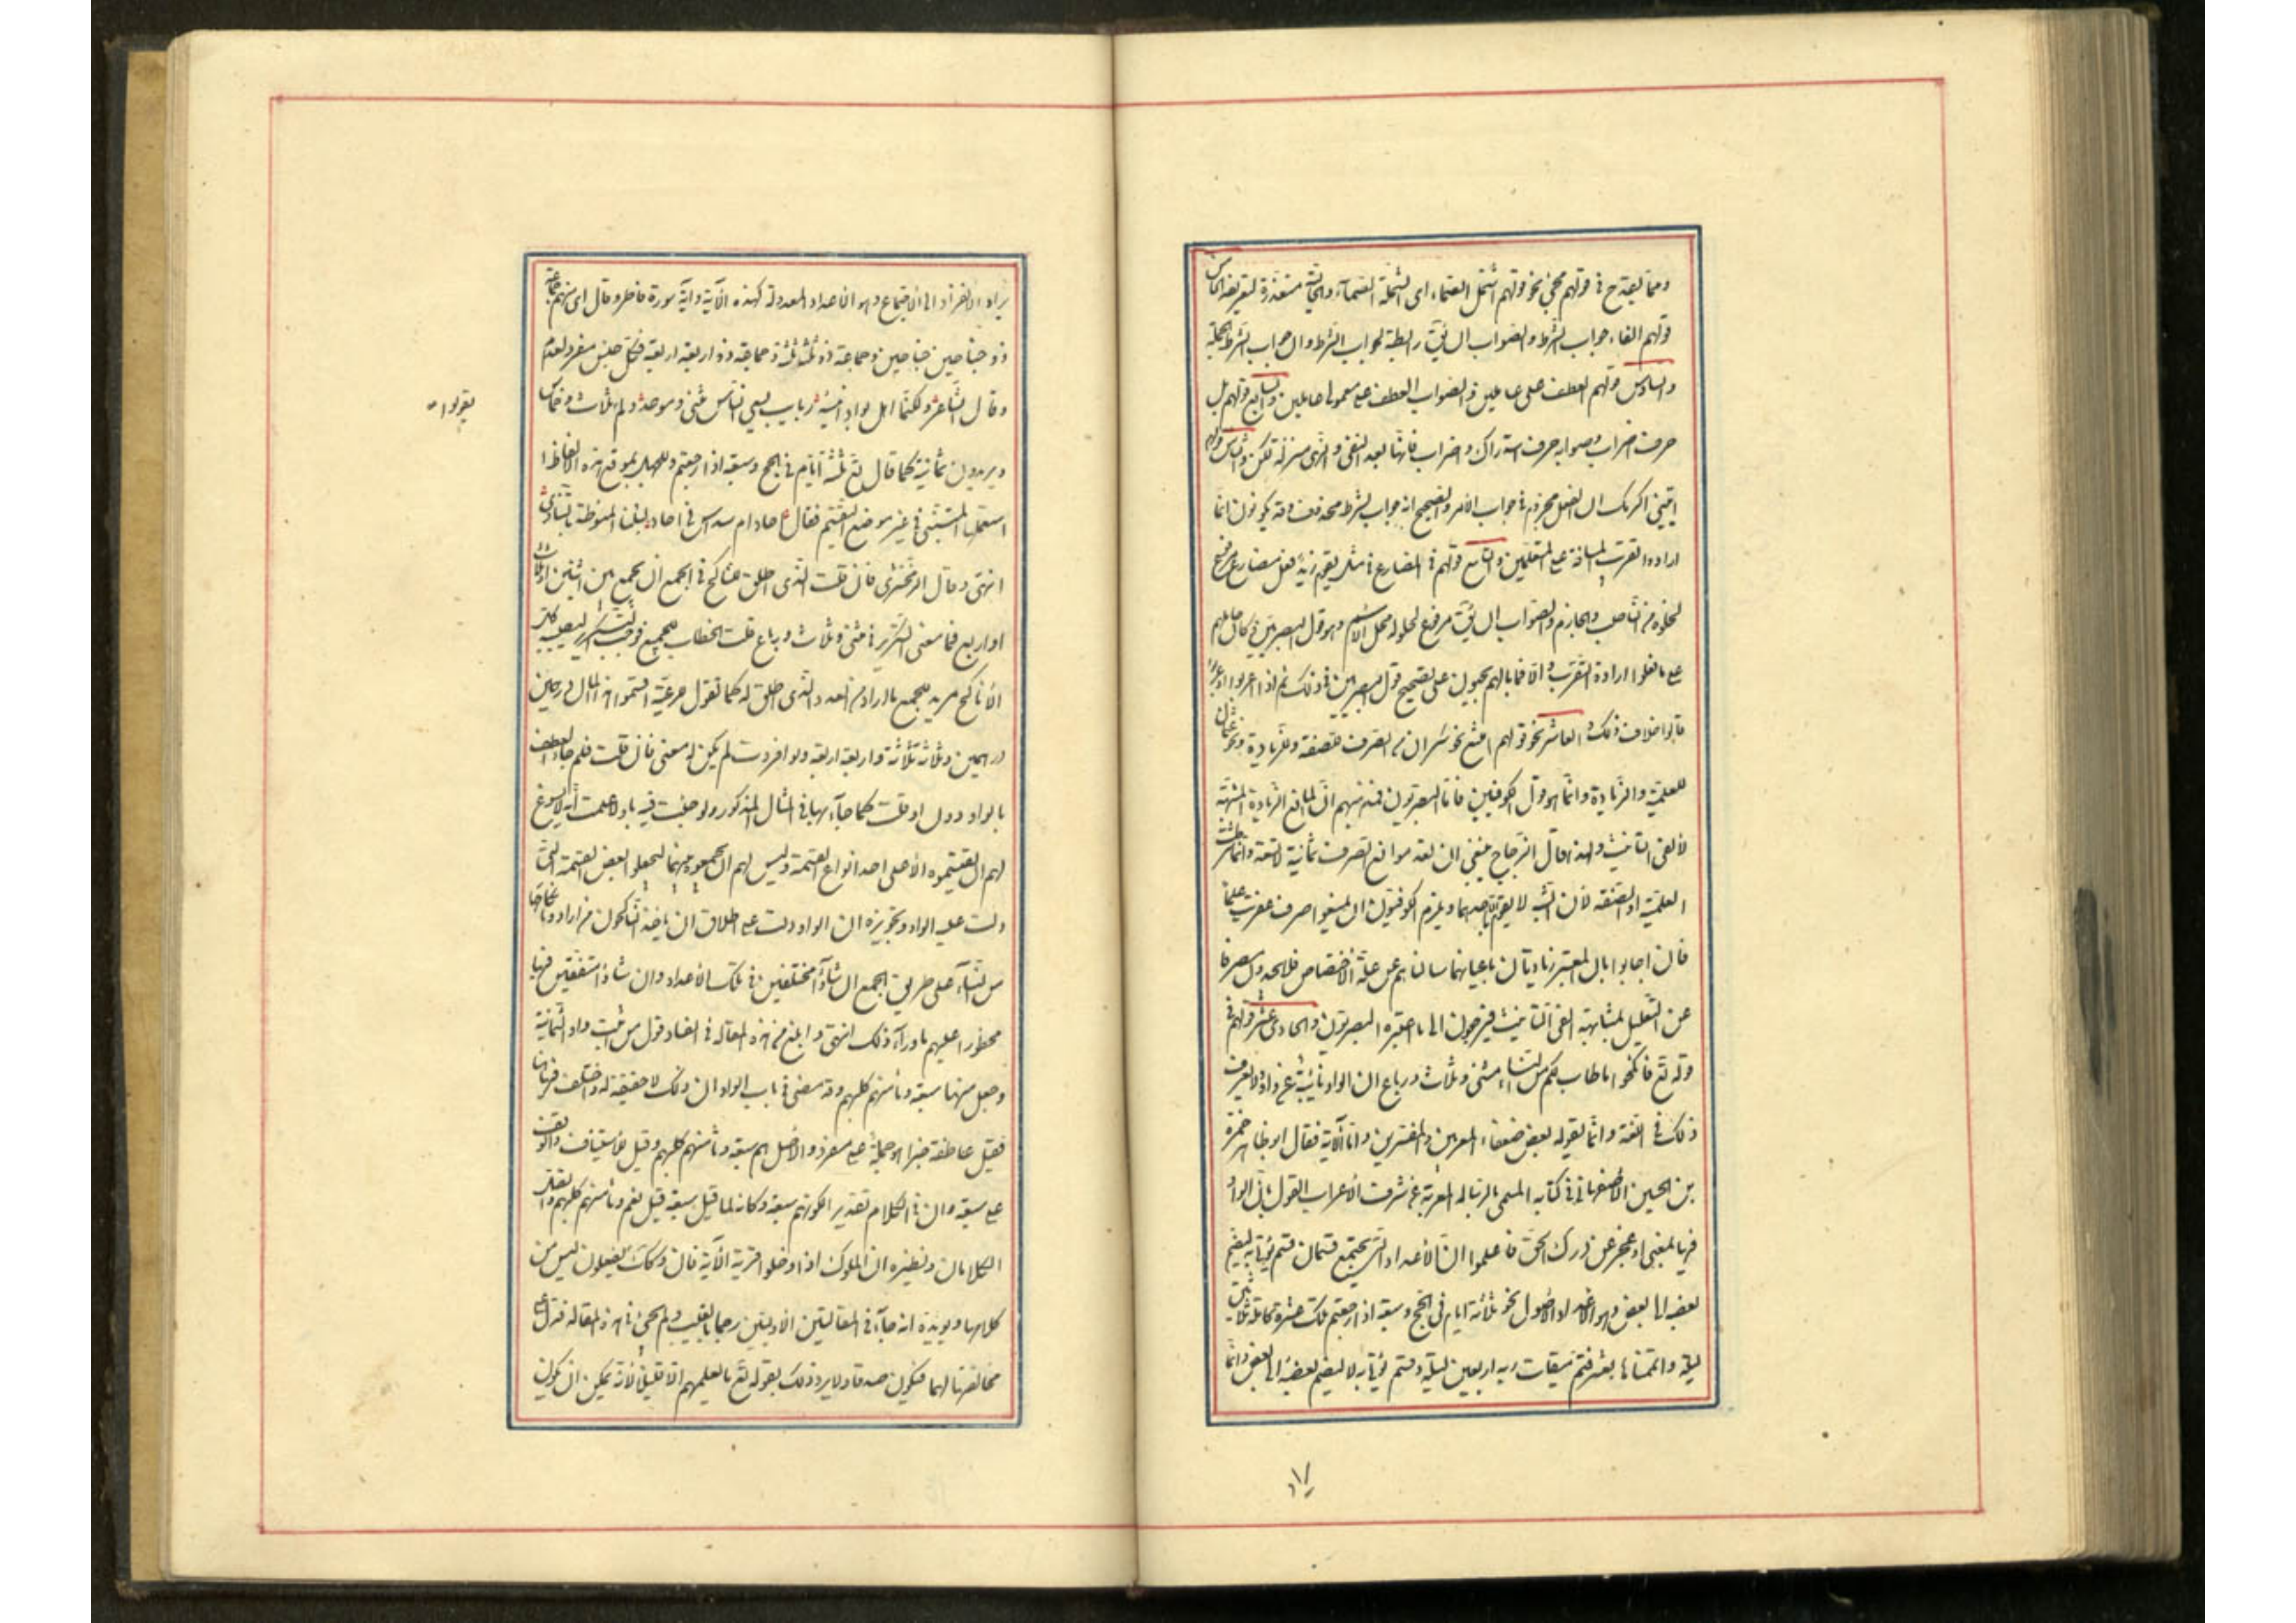 ومما يقدح في قولهم مجئ نحو قولهم اشتمل الصماء اى الشملة الصمآء والحالة متعذرة لتعريفه الخامس
قولهم الفاء جواب الشرط والصواب ان يق رابطة لجواب الشرط وان جواب الشرط الجملة
والسادس قولهم العطف على عاملين والصواب العطف على معمولى عاملين والسابع قولهم بل
حرف اضراب وصوابه حرف استدراك واضراب فانها بعد النفى والنهى بمنزلة لكن والثامن قولهم
ايتينى اكرمك ان الفعل مجزوم في جواب الامر والصحيح انه جواب لشرط محذوف وقد يكونون انما
ارادوا تقريب المسافة على المتعلمين والتاسع قولهم في المضارع في مثل يقوم زيد فعل مضارع مرفوع
لخلوه من الناصب والجازم والصواب ان يق مرفوع لحلوله محل الاسم وهو قول البصريين وكان حاملهم
على ما فعلوا ارادة التقريب والا فما بالهم يبحثون على تصحيح قول البصريين في ذلك ثم اذا اعربوا او عربوا
قالوا خلاف ذلك العاشر نحو قولهم امتنع نحو سكران من الصرف للصفة وللزيادة ونحو عثمان
للعلمية والزيادة وانما هو قول الكوفيين فاما البصريون فمذهبهم ان المانع الزيادة المشبهة
لالفى التانيث ولهذا قال الزجاج ينبغى ان تعد موانع الصرف ثمانية لا تسعة وانما شرطت
العلمية او الصفة لان الشبه لا يقوم الا باحدهما ويلزم الكوفيون ان يمنعوا صرف عفريت علما
فان اجابوا بان المعتبر زيادتان باعيانهما سالناهم عن علة الاختصاص فلا يجدون مصرفا
عن التعليل بمشابهة الفى التانيث فيرجعون الى ما اعتبره البصريون والحادى عشر قولهم في
قوله تع فانكحوا ما طاب لكم من النساء مثنى وثلاث ورباع ان الواو نائبة عن او ولا يعرف
ذلك في اللغة وانما يقوله بعض ضعفاء المعربين والمفسرين واما الآية فقال ابو طاهر حمزة
بن الحسين الاصفهانى في كتابه المسمى بالرسالة المعربة عن شرف الاعراب القول بان الواو
فيها بمعنى او عجز عن درك الحق فاعلموا ان الاعداد التى تجتمع قسمان قسم يؤتى به ليضم
بعضه الى بعض وهو الاعداد الاصول نحو ثلاثة ايام في الحج وسبعة اذا رجعتم تلك عشرة كاملة ثلاثين
ليلة واتممناها بعشر فتم ميقات ربه اربعين ليلة وقسم يؤتى به لا ليضم بعضه الى بعض وانما
يراد الانفراد لا الاجتماع وهو الاعداد المعدولة كهذه الآية وآية سورة فاطر وقال اى منهم جماعة
ذوو جناحين جناحين وجماعة ذوو ثلثة ثلثة وجماعة ذوو اربعة اربعة فكل جنس مفرد بعدد
وقال الشاعر ولكنما اهلى بواد انيسه ذئاب يبغى الناس مثنى وموحد ولم ثلاث وخماس
يقولوا
ويريدون ثمانية كما قال تع ثلثة ايام في الحج وسبعة اذا رجعتم وللجهل بموقع هذه الالفاظ
استعملها المتنبى في غير موضع التقسيم فقال احاد ام سداس في احاد لييلتنا المنوطة بالتنادى
انتهى وقال الزمخشرى فان قلت الذى اطلق للناكح في الجمع ان يجمع بين اثنين او ثلاث
او اربع فما معنى التكرير في مثنى وثلاث ورباع قلت الخطاب للجميع فوجب التكرير ليصيب كل
ناكح يريد الجمع ما اراد من العدد الذى اطلق له كما تقول للجماعة اقتسموا هذا المال درهمين
درهمين وثلاثة ثلاثة واربعة اربعة ولو افردت لم يكن له معنى فان قلت فلم جاء العطف
بالواو دون او قلت كما جآء بها في المثال المذكور ولو جئت فيه باو لاعلمت انه لا يسوغ
لهم ان يقتسموه الا على احد انواع القسمة وليس لهم ان يجمعوا بينها فيجعلوا بعض القسمة على
دلت عليه الواو وتحريره ان الواو دلت على اطلاق ان ياخذ الناكحون من ارادوا نكاحها
من النسآء على طريق الجمع ان شاؤا مختلفين في تلك الاعداد وان شاؤا متفقين فيها
محظورا عليهم ما ورآء ذلك انتهى وابلغ من هذه المقالة في الفساد قول من اثبت واو الثمانية
وجعل منها سبعة وثامنهم كلبهم وقد مضى في باب الواو ان ذلك لا حقيقة له واختلف فيها هنا
فقيل عاطفة خبرا هو جملة على مفرد والاصل هم سبعة وثامنهم كلبهم وقيل للاستيناف والوقف
على سبعة وان في الكلام تقدير الكونهم سبعة وكانه لما قيل سبعة قيل نعم وثامنهم كلبهم واتصل
الكلامان ونظيره ان الملوك اذا دخلوا قرية الآية فان وكذلك يفعلون ليس من
كلامها ويؤيده انه جآء في المقالتين الاوليين رجما بالغيب ولم يجئ في هذه المقالة فدل على
مخالفتها لهما فتكون صدقا ولا يرد ذلك بقوله تع ما يعلمهم الا قليل لانه يمكن ان يكون